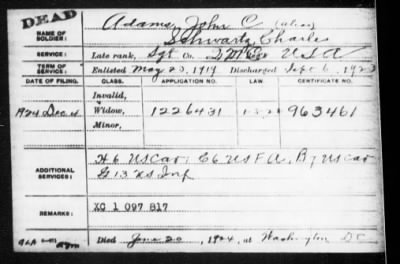 DEAD
NAME OF SOLDIER: Adams, John C (alias)
Schwartz, Charles
SERVICE: Late rank, Sgt Co. Q M C U S A
TERM OF SERVICE: Enlisted May 20, 1919 Discharged Sept 6, 1923
DATE OF FILING. CLASS. APPLICATION NO. LAW CERTIFICATE NO.
Invalid,
1924 Dec 4 Widow, 1226431 963461
Minor,
ADDITIONAL SERVICES: H 6 US Cav; C 6 US F A, B 7 US Cav
G 13 US Inf
REMARKS: XC 1 097 817
Died June 20, 1924, at Washington D C